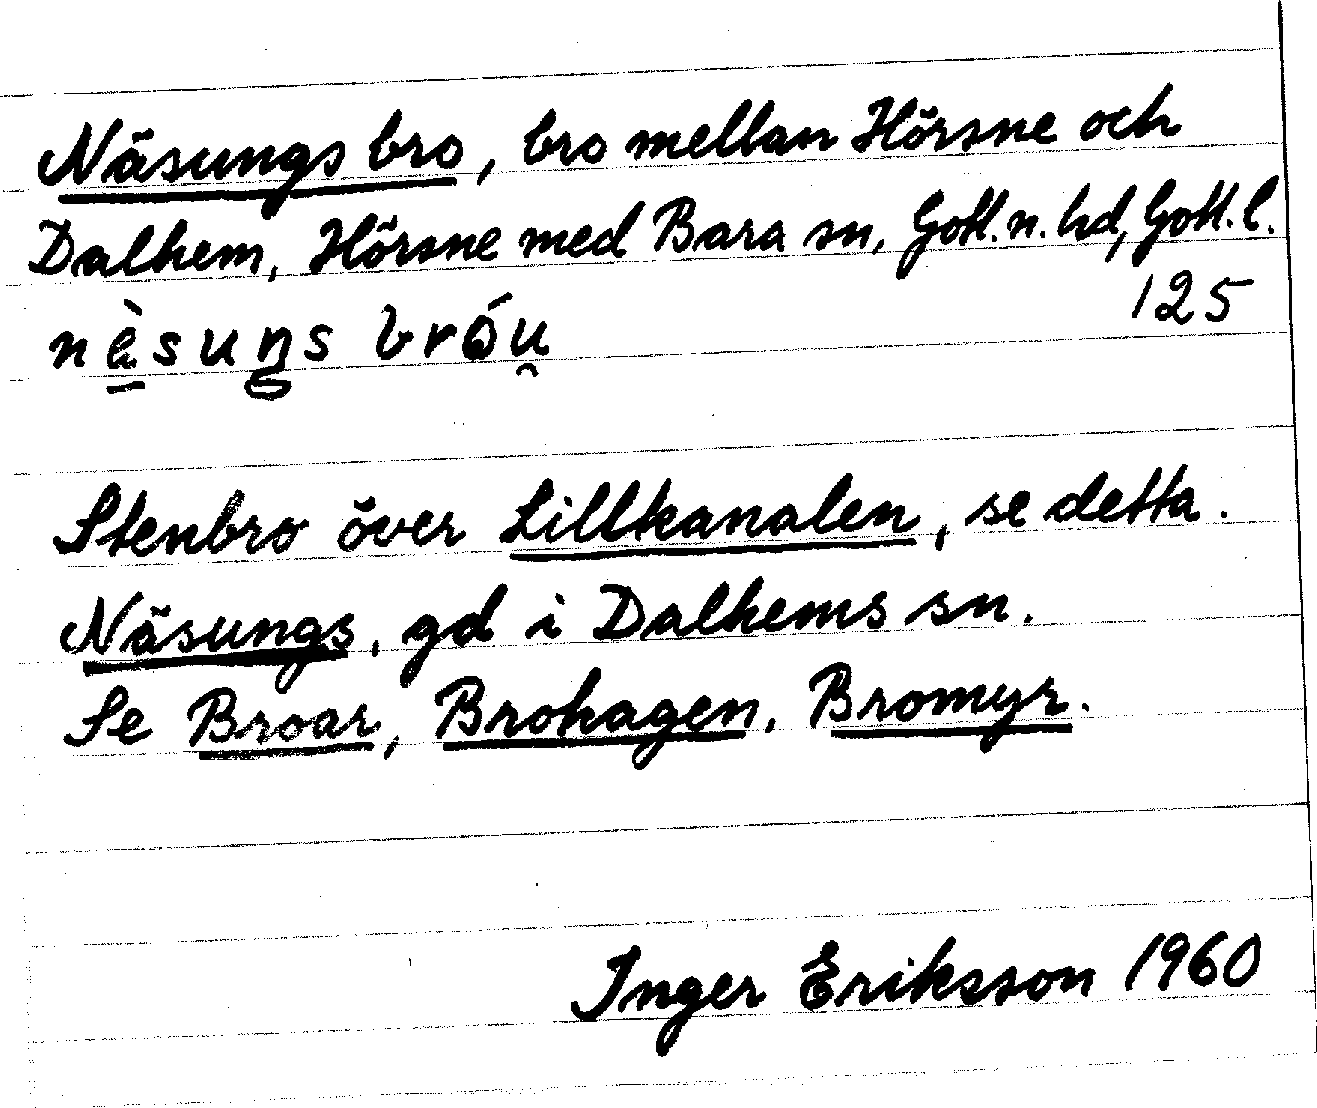 Näsungs bro, bro mellan Hörsne och
Dalhem, Hörsne med Bara sn, Gotl. n. hd, Gotl. l.
125
nè̱suŋs bróu̯
Stenbro över Lillkanalen, se detta.
Näsungs, gd i Dalhems sn.
Se Broar, Brohagen, Bromyr.
Inger Eriksson 1960